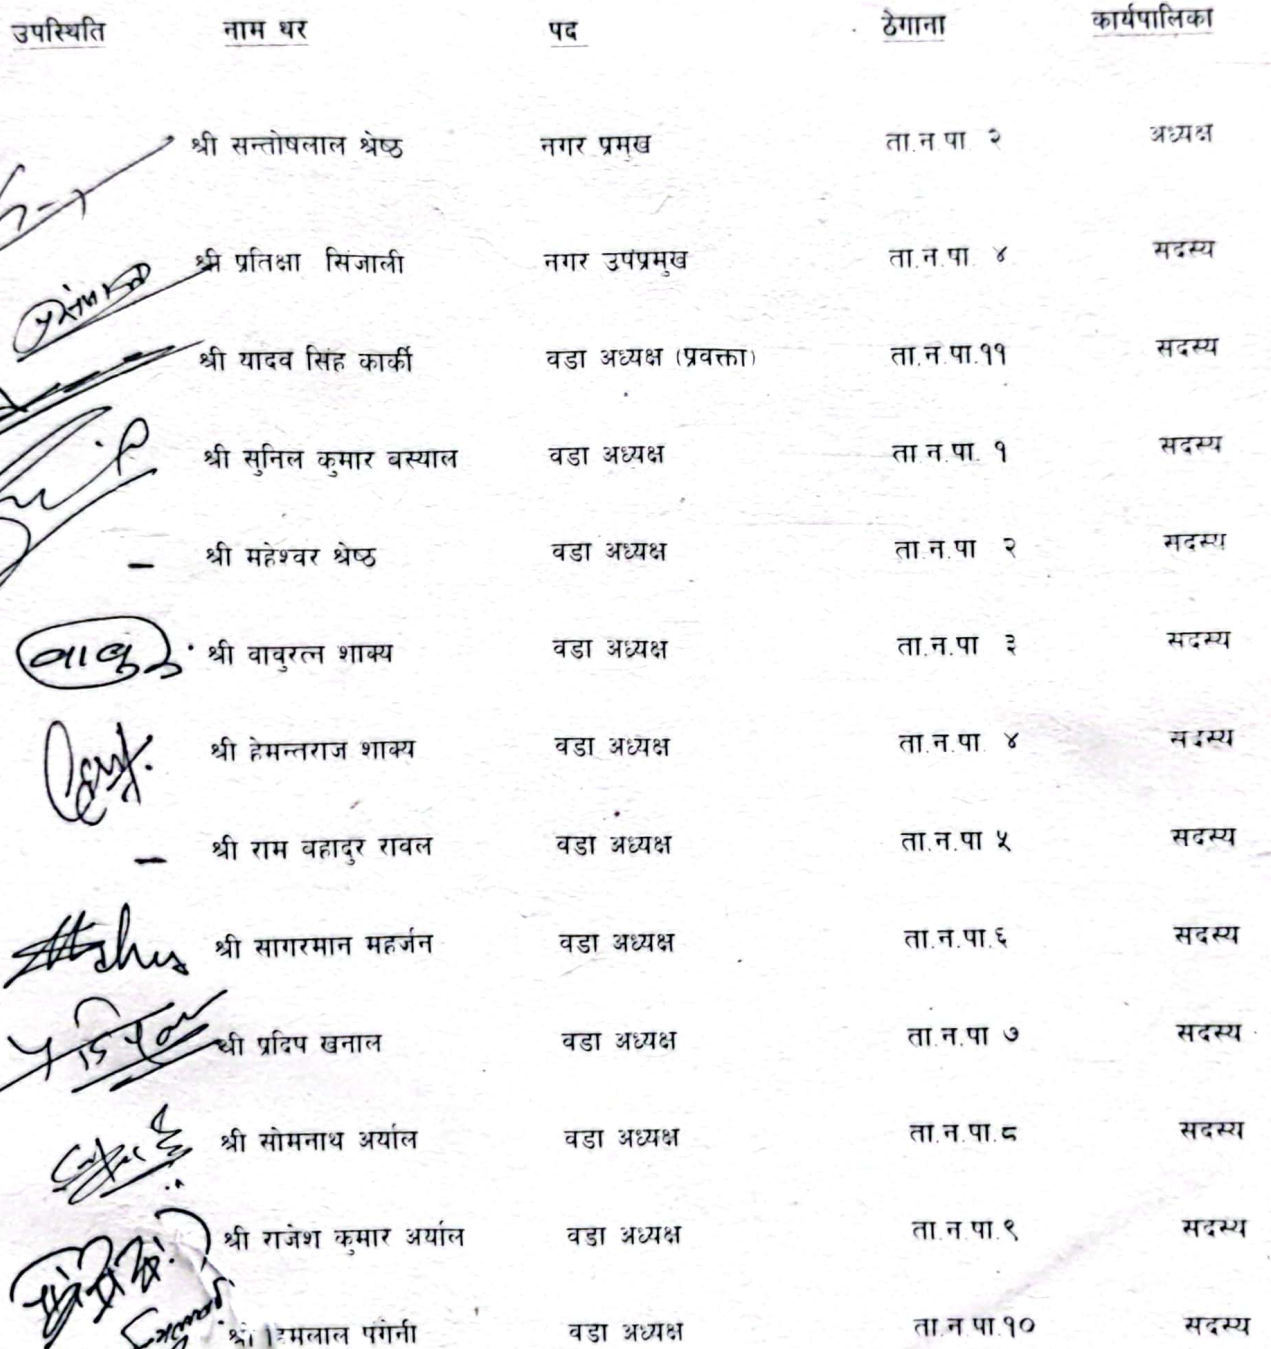 उपस्थिति नाम थर पद ठेगाना कार्यपालिका
श्री सन्तोषलाल श्रेष्ठ नगर प्रमुख ता.न.पा २ अध्यक्ष
श्री प्रतिक्षा सिंजाली नगर उपप्रमुख ता.न.पा. ४ सदस्य
श्री यादव सिंह कार्की वडा अध्यक्ष (प्रवक्ता) ता.न.पा.११ सदस्य
श्री सुनिल कुमार बस्याल वडा अध्यक्ष ता.न.पा. १ सदस्य
- श्री महेश्वर श्रेष्ठ वडा अध्यक्ष ता.न.पा २ सदस्य
श्री वावुरत्न शाक्य वडा अध्यक्ष ता.न.पा ३ सदस्य
श्री हेमन्तराज शाक्य वडा अध्यक्ष ता.न.पा ४ सदस्य
- श्री राम वहादुर रावल वडा अध्यक्ष ता.न.पा ५ सदस्य
श्री सागरमान महर्जन वडा अध्यक्ष ता.न.पा.६ सदस्य
श्री प्रदिप खनाल वडा अध्यक्ष ता.न.पा ७ सदस्य
श्री सोमनाथ अर्याल वडा अध्यक्ष ता.न.पा.८ सदस्य
श्री राजेश कुमार अर्याल वडा अध्यक्ष ता.न.पा.९ सदस्य
श्री वडा अध्यक्ष ता.न.पा.१० सदस्य